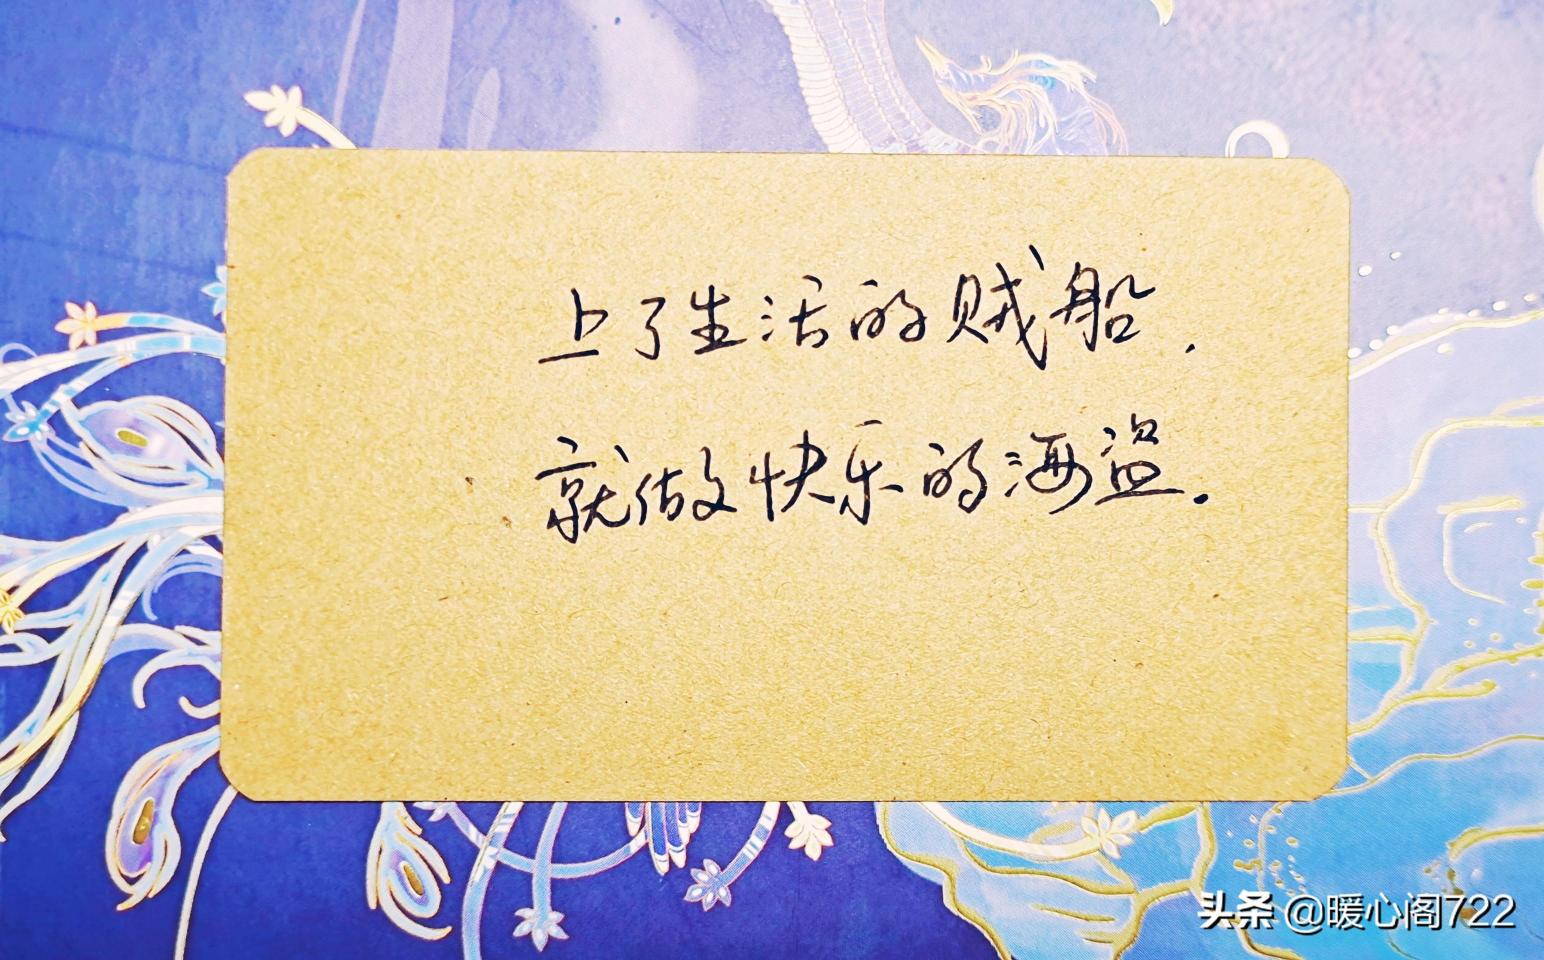 上了生活的贼船.
就做快乐的海盗.
头条 @暖心阁722